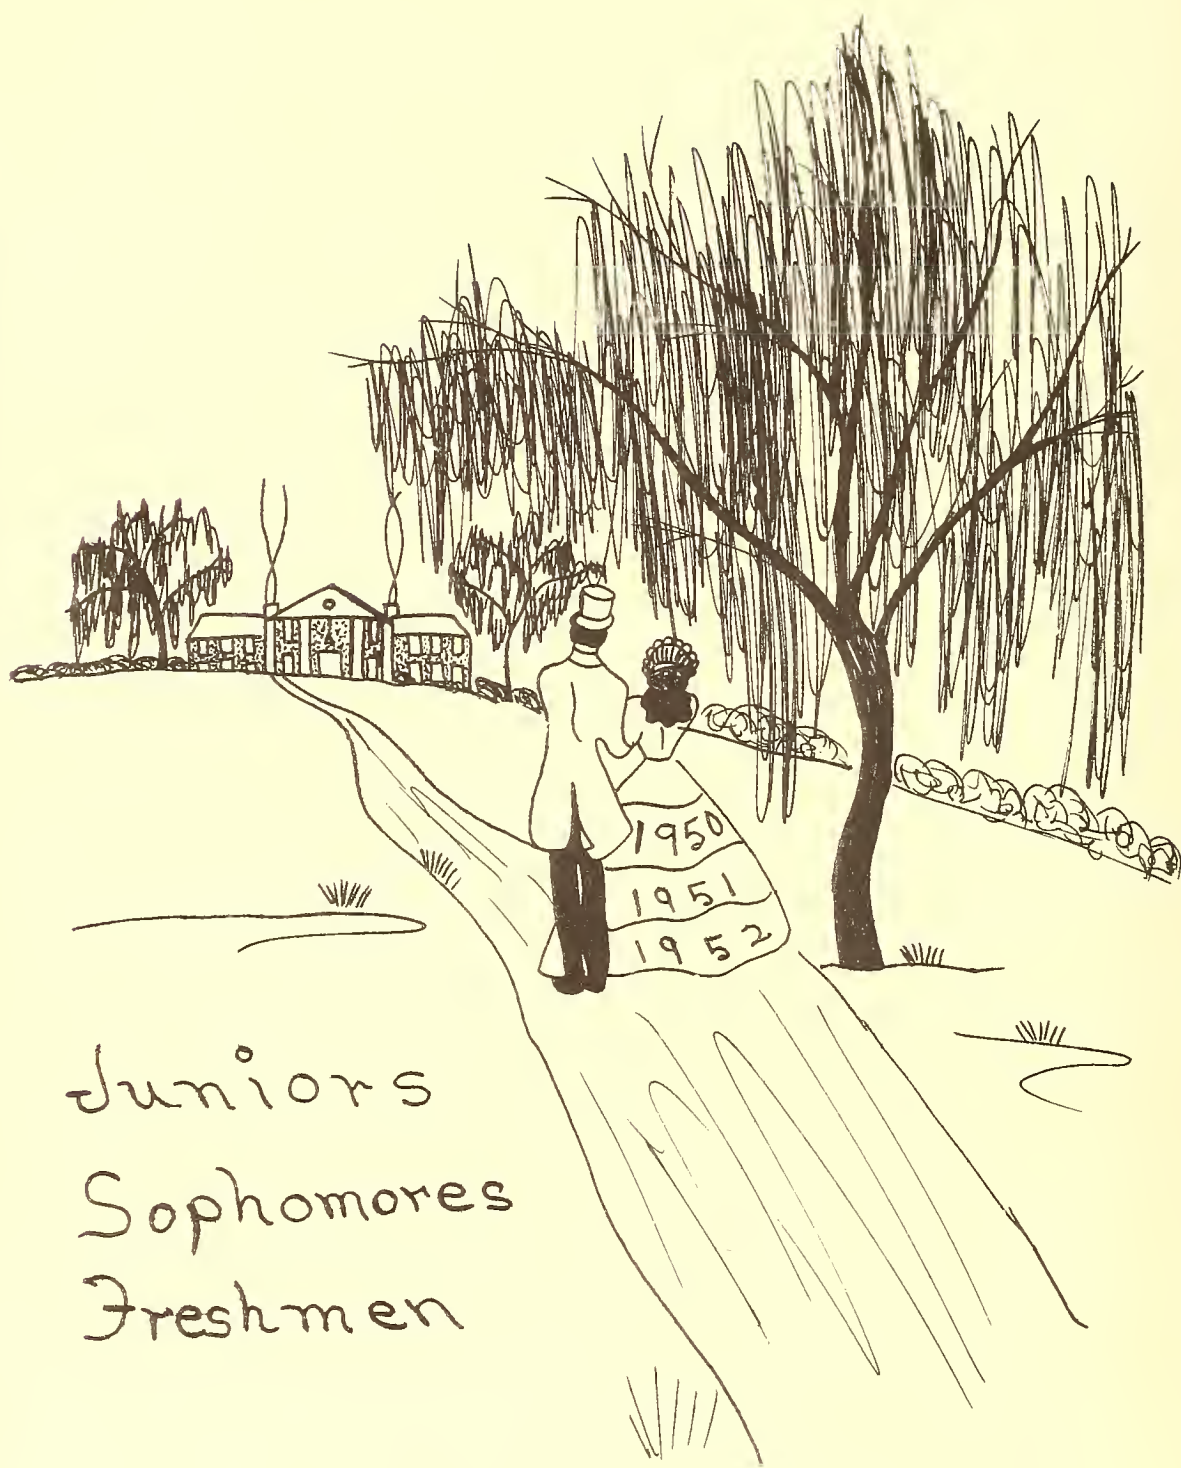 1950
1951
1952
Juniors
Sophomores
Freshmen